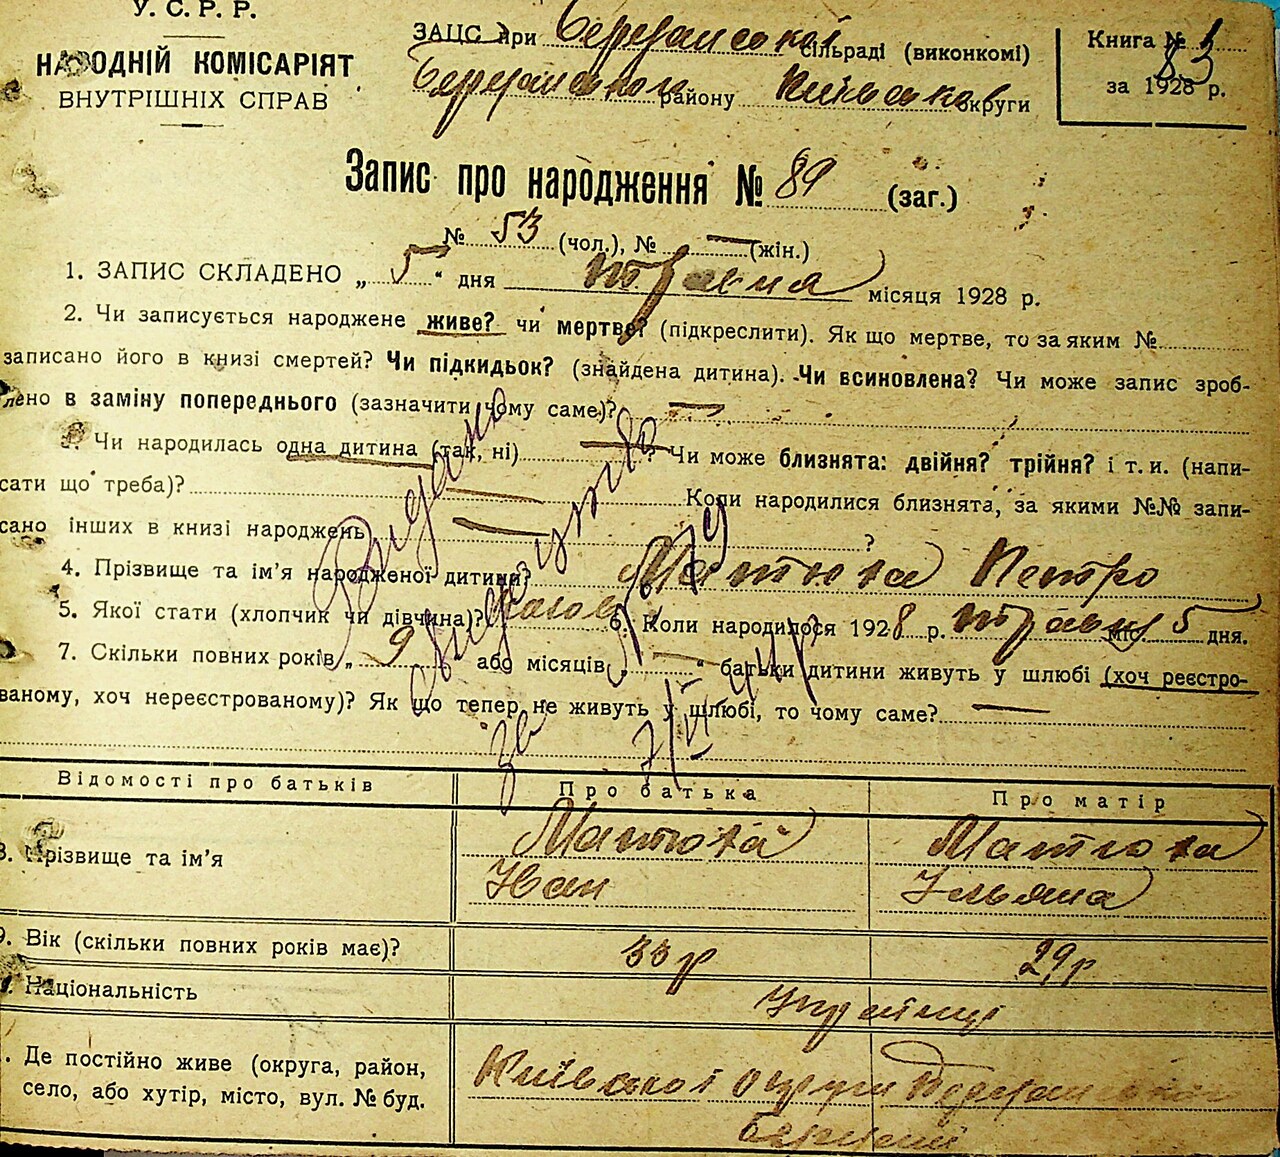 У. С. Р. Р.
НАРОДНІЙ КОМІСАРІЯТ
ВНУТРІШНІХ СПРАВ
ЗАЦС при Березанської сільраді (виконкомі)
Березанського району Київської округи
Книга №
за 1928 р.
Запис про народження № 89 (заг.)
№ 53 (чол.), № — (жін.)
1. ЗАПИС СКЛАДЕНО „ 5 " дня травня місяця 1928 р.
2. Чи записується народжене живе? чи мертве? (підкреслити). Як що мертве, то за яким №
записано його в книзі смертей? Чи підкидьок? (знайдена дитина). Чи всиновлена? Чи може запис зроб-
лено в заміну попереднього (зазначити чому саме)? —
3. Чи народилась одна дитина (так, ні) — ? Чи може близнята: двійня? трійня? і т. и. (напи-
сати що треба)? — Коли народилися близнята, за якими №№ запи-
сано інших в книзі народжень — ?
4. Прізвище та ім'я народженої дитини? Матюха Петро
5. Якої стати (хлопчик чи дівчина)? 6. Коли народилося 1928 р. травня міс. 5 дня.
7. Скільки повних років „ 9 " або місяців „ — " батьки дитини живуть у шлюбі (хоч реєстро-
ваному, хоч нереєстрованому)? Як що тепер не живуть у шлюбі, то чому саме? —
Видано
Відомості про батьків Про батька Про матір
8. Прізвище та ім'я Матюха Матюха
Іван Ульяна
9. Вік (скільки повних років має)? 33 р 29 р
Національність Українці
Де постійно живе (округа, район, Київської округи
село, або хутір, місто, вул. № буд.